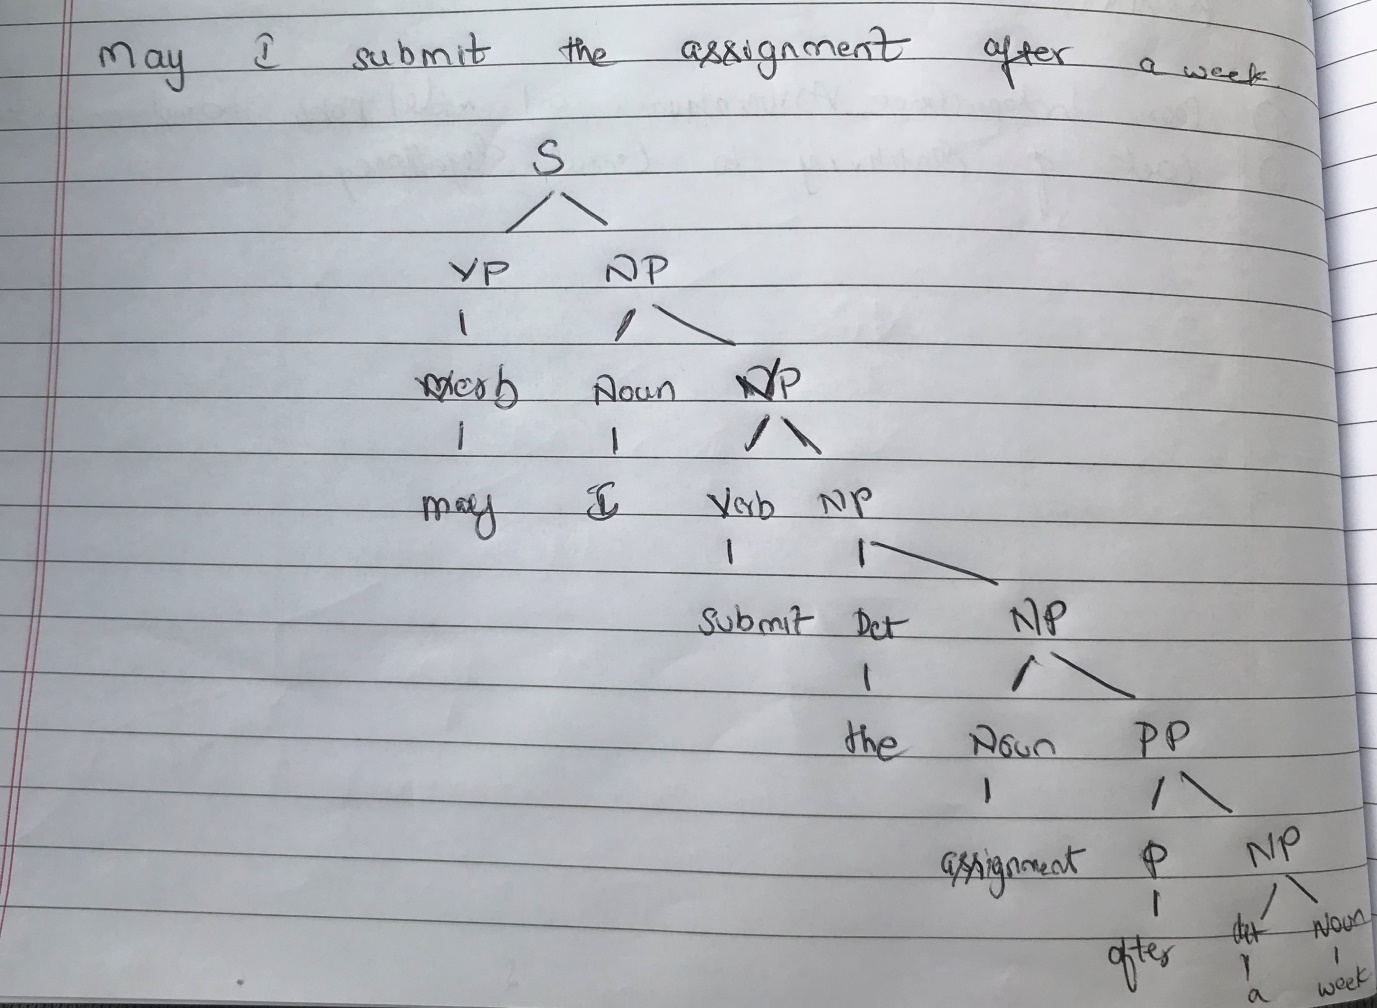 May I submit the assignment after a week
S
VP NP
Verb Noun VP
may I Verb NP
Submit Det NP
the Noun PP
assignment P NP
after det Noun
a week